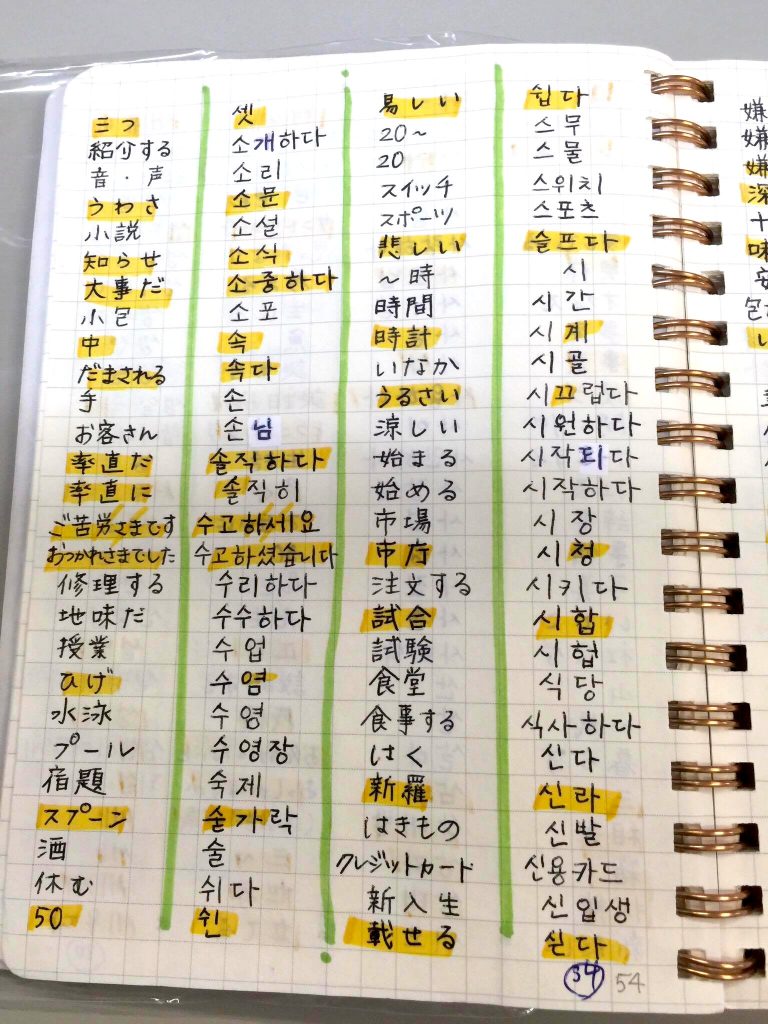 三つ 셋
紹介する 소개하다
音・声 소리
うわさ 소문
小説 소설
知らせ 소식
大事だ 소중하다
小包 소포
中 속
だまされる 속다
手 손
お客さん 손님
率直だ 솔직하다
率直に 솔직히
ご苦労さまです 수고하세요
おつかれさまでした 수고하셨습니다
修理する 수리하다
地味だ 수수하다
授業 수업
ひげ 수염
水泳 수영
プール 수영장
宿題 숙제
スプーン 숟가락
酒 술
休む 쉬다
50 쉰
易しい 쉽다
20~ 스무
20 스물
スイッチ 스위치
スポーツ 스포츠
悲しい 슬프다
~時 시
時間 시간
時計 시계
いなか 시골
うるさい 시끄럽다
涼しい 시원하다
始まる 시작되다
始める 시작하다
市場 시장
市庁 시청
注文する 시키다
試合 시합
試験 시험
食堂 식당
食事する 식사하다
はく 신다
新羅 신라
はきもの 신발
クレジットカード 신용카드
新入生 신입생
載せる 싣다
34 54
嫌
嫌
嫌
深
味